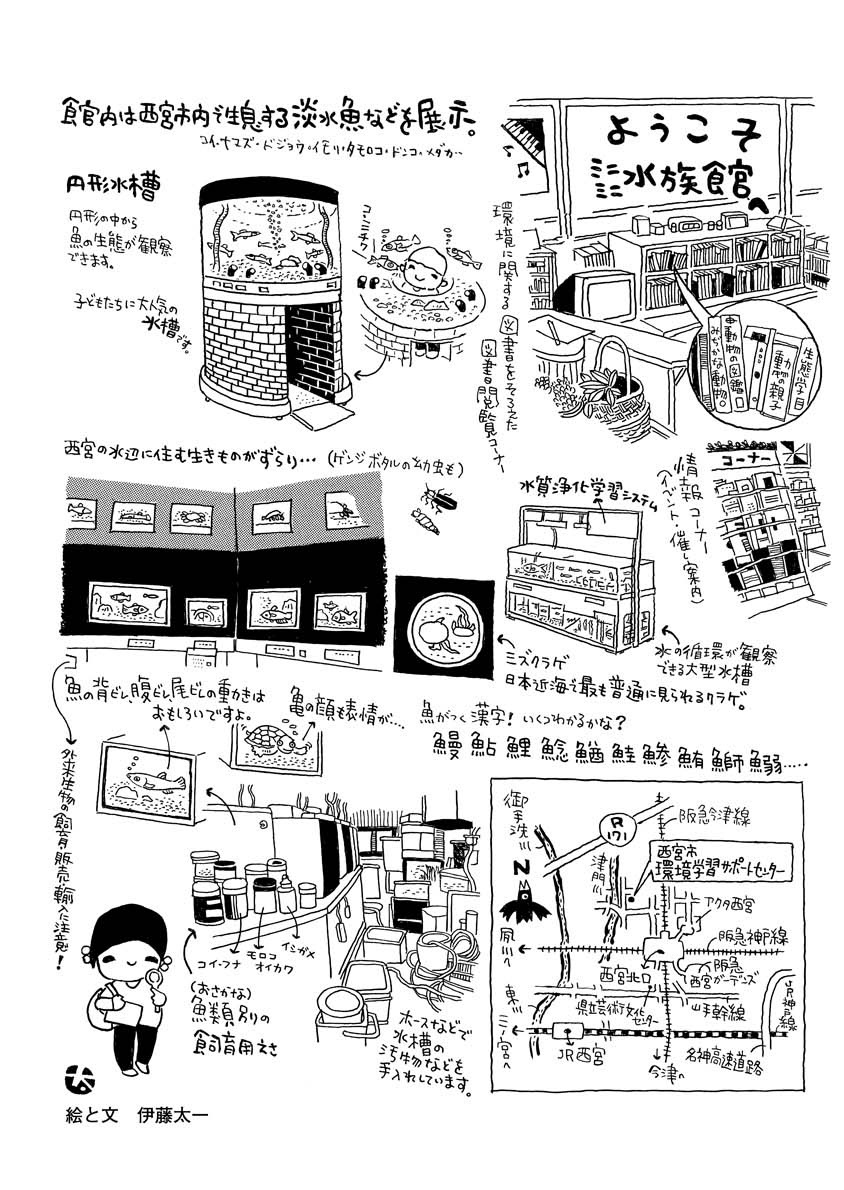 館内は西宮市内で生息する淡水魚などを展示。
コイ・ナマズ・ドジョウ・イモリ・タモロコ・ドンコ・メダカ…
円形水槽
円形の中から
魚の生態が観察
できます。
子どもたちに大人気の
水槽です。
コンニチワ
ようこそ
ミニミニ水族館へ
環境に関する図書をそろえた
図書閲覧コーナー
動物の図鑑
みぢかな動物。
動物の親子
生態学
西宮の水辺に住む生きものがずらり…(ゲンジボタルの幼虫も)
水質浄化学習システム
情報コーナー
(イベント・催し案内)
コーナー
水の循環が観察
できる大型水槽
ミズクラゲ
日本近海で最も普通に見られるクラゲ。
魚の背ビレ、腹ビレ、尾ビレの動きは
おもしろいですよ。
亀の顔も表情が…
魚がつく漢字!いくつわかるかな?
鰻 鮎 鯉 鯰 鰌 鮭 鯵 鮪 鰤 鰯……
外来生物の飼育販売輸入に注意!
コイ・フナ
モロコ
オイカワ
イシガメ
(おさかな)
魚類別の
飼育用エサ
ホースなどで
水槽の
汚物などを
手入れしています。
御手洗川
R
171
阪急今津線
西宮市
環境学習サポートセンター
津門川
N
アクタ西宮
夙川へ
阪急神戸線
西宮北口
阪急
西宮ガーデンズ
東川
県立芸術文化
センター
山手幹線
JR神戸線
三ノ宮へ
JR西宮
名神高速道路
今津へ
絵と文 伊藤太一